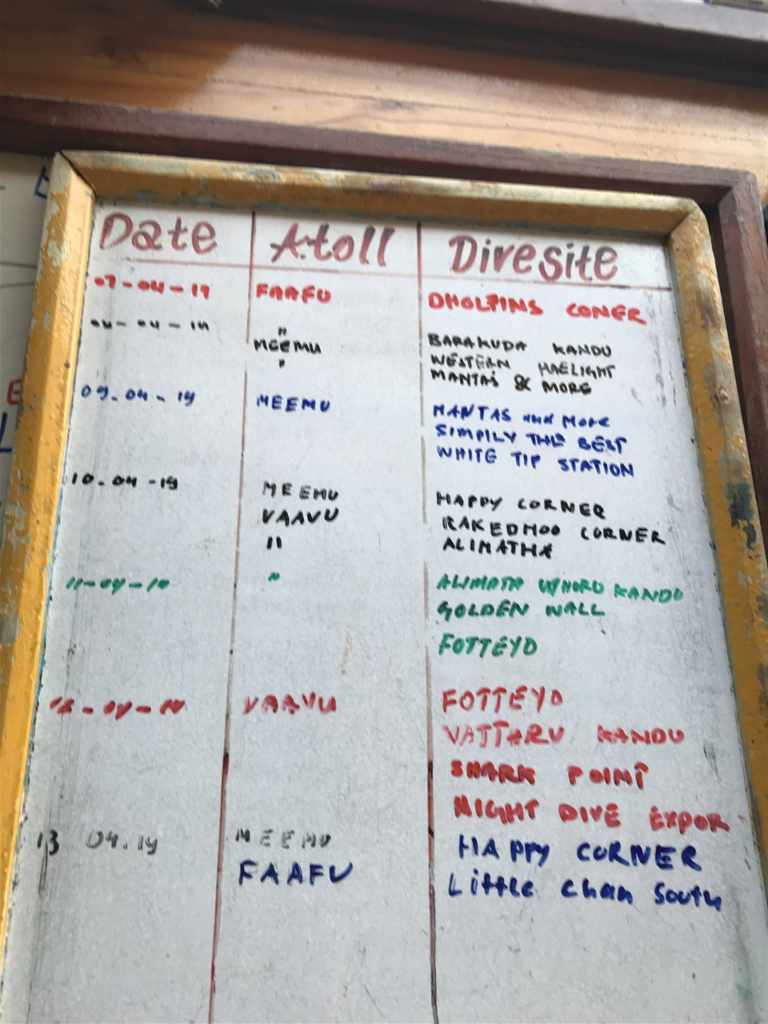 Date Atoll Divesite
07-04-19 FAAFU DHOLPINS CONER
" BARAKUDA KANDU
MEEMU WESTERN HAELIGHT
" MANTAS & MORE
09-04-19 MEEMU MANTAS and MORE
SIMPILY THE BEST
WHITE TIP STATION
10.04-19 MEEMU HAPPY CORNER
VAAVU RAKEDHOO CORNER
" ALIMATHA
11-04-19 " ALIMATA KANDU
GOLDEN WALL
FOTTEYO
12-04-19 VAAVU FOTTEYO
VATTARU KANDU
SHARK POINT
NIGHT DIVE EXPOR
13 04.19 MEEMU HAPPY CORNER
FAAFU Little chan South